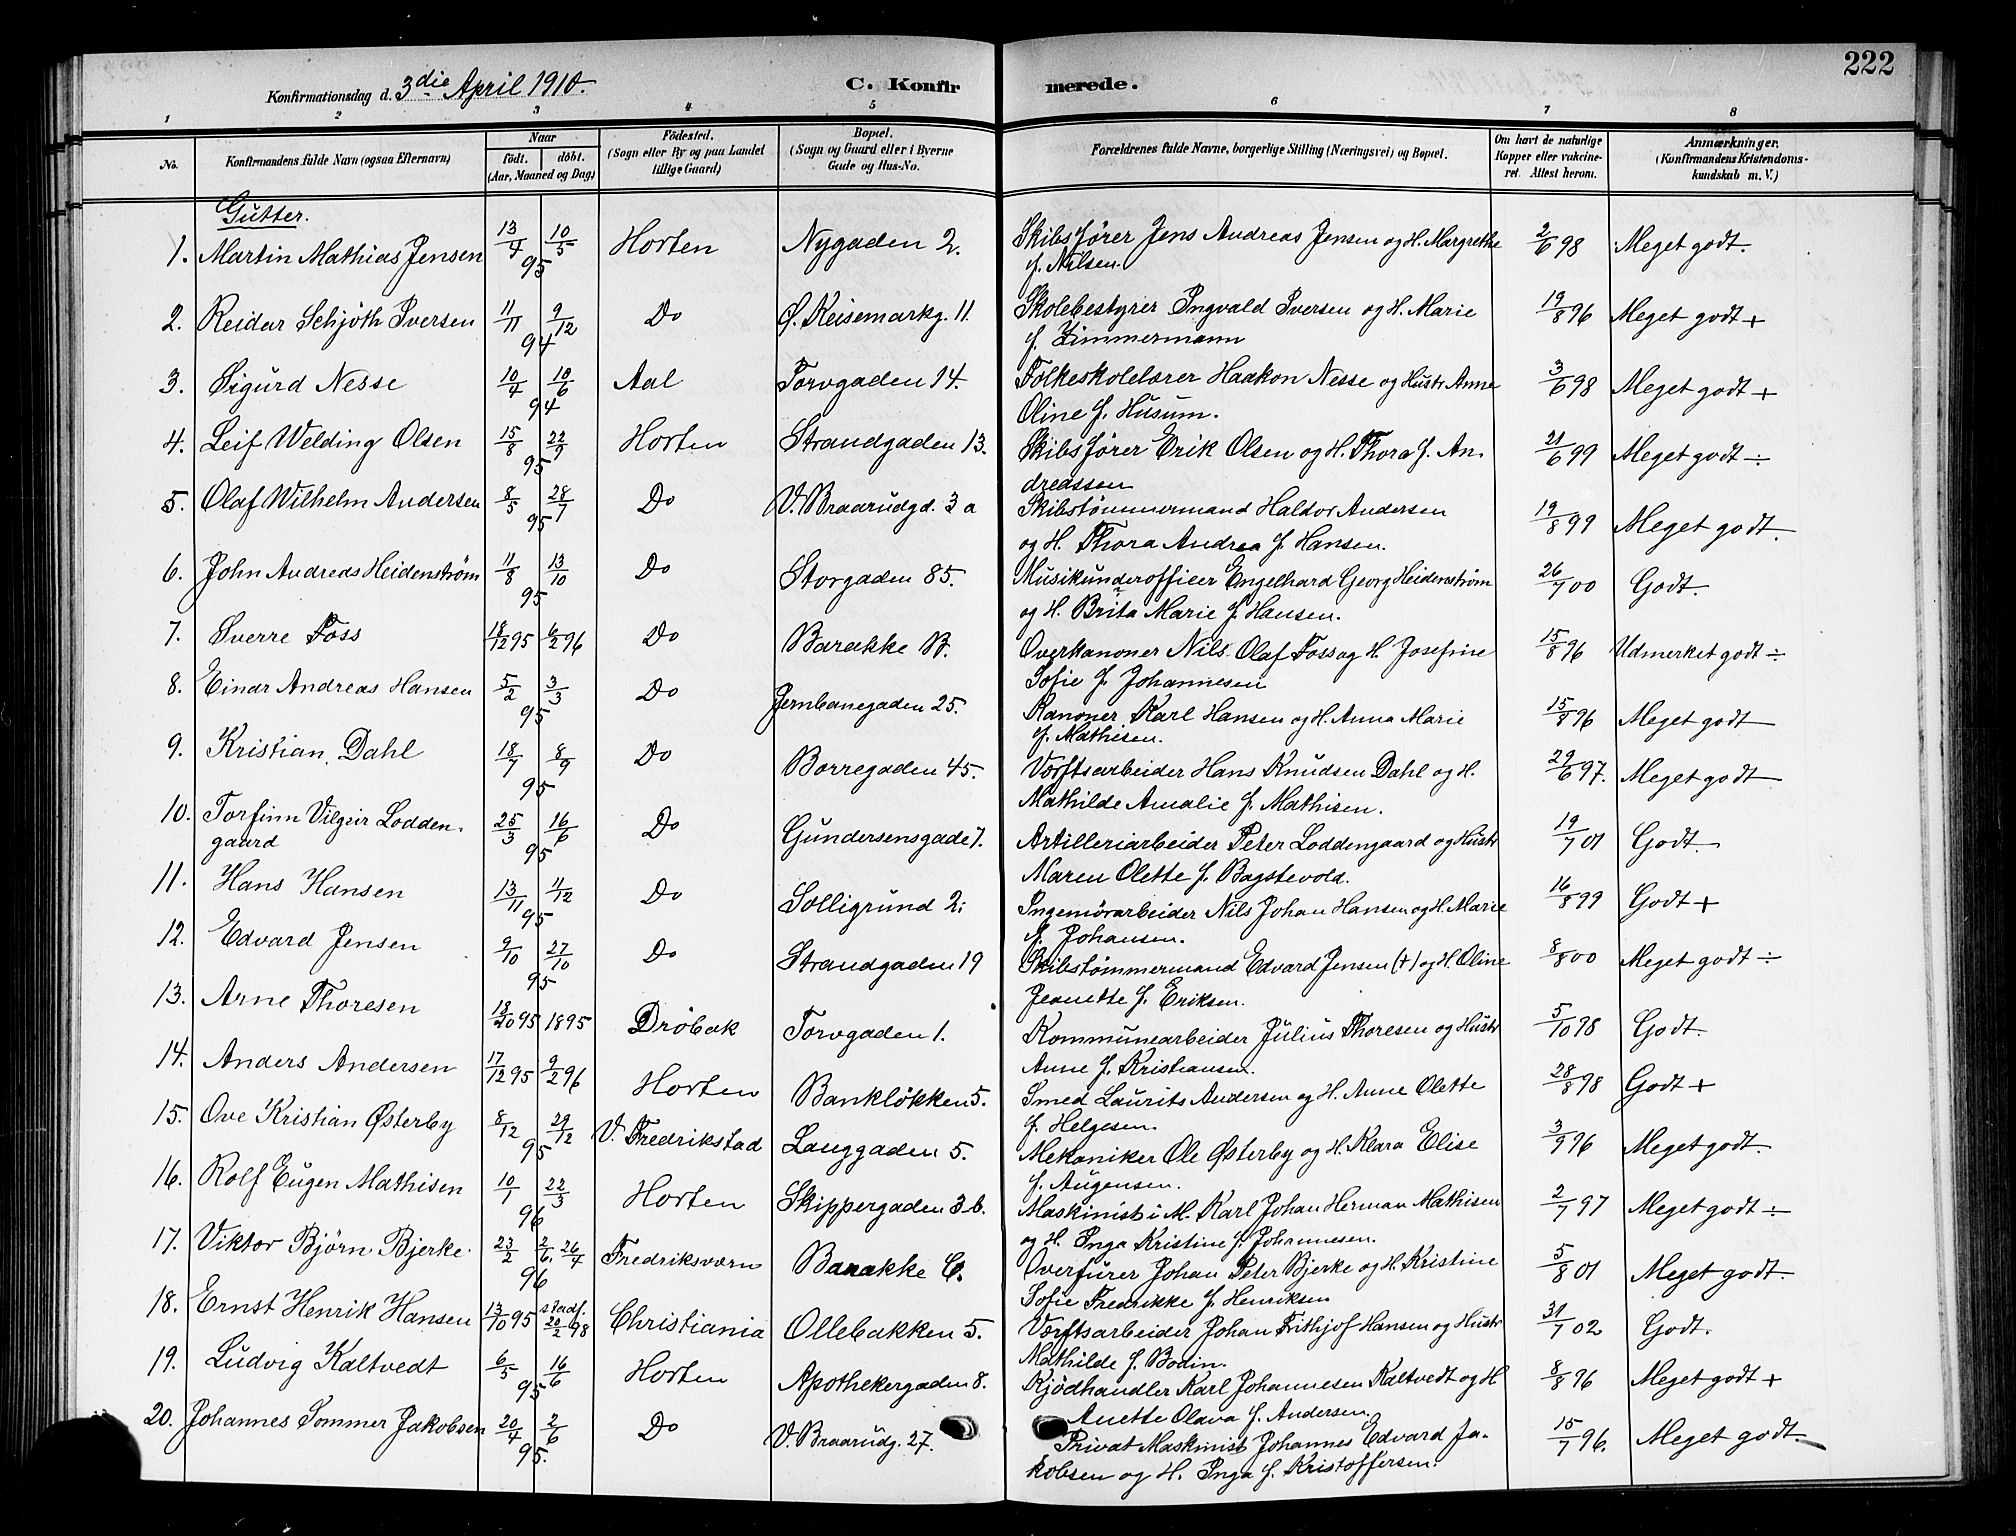 222
Konfirmationsdag d. 3die April 1910.
C. Konfirmerede.
1 2 3 4 5 6 7 8
No. Konfirmandens fulde Navn (ogsaa Efternavn) Naar født. døbt. (Aar, Maaned og Dag) Fødested. (Sogn eller By og paa Landet tillige Gaard) Bopæl. (Sogn og Gaard eller i Byerne Gade og Hus-No. Forældrenes fulde Navne, borgerlige Stilling (Næringsvei) og Bopæl. Om havt de naturlige Kopper eller vakcineret. Attest herom. Anmærkninger. (Konfirmandens Kristendomskundskab m. V.)
Gutter.
1. Martin Mathias Jensen 13/4 10/5 95 Horten Nygaden 2. Skibsfører Jens Andreas Jensen og H. Margrethe 2/6 98 Meget godt.
f. Nilsen.
2. Reidar Schjøth Iversen 11/11 9/12 94 Do Ø. Keisemarkg. 11 Skolebestyrer Ingvald Iversen og H. Marie 19/8 96 Meget godt +
f. Zimmermann
3. Sigurd Nesse 10/4 10/6 94 Aal Torvgaden 14. Folkeskolelærer Haakon Nesse og Hustr Anne 3/6 98 Meget godt +
Oline f. Husum.
4. Leif Welding Olsen 15/8 22/9 95 Horten Strandgaden 13. Skibsfører Erik Olsen og H. Thora f. An- 21/6 99 Meget godt ÷
dreassen
5. Olaf Wilhelm Andersen 8/5 28/7 95 Do V. Braarudgd. 3 a Skibstømmermand Haldor Andersen 19/8 99 Meget godt.
og H. Thora Andrea f. Hansen.
6. John Andreas Heidenstrøm 11/8 13/10 95 Do Storgaden 85. Musikunderofficer Engelhard Georg Heidenstrøm 26/7 00 Godt.
og H. Brita Marie f. Hansen.
7. Sverre Foss 18/12 95 6/2 96 Do Barakke B. Overkanoner Nils Olaf Foss og H. Josefine 15/8 96 Udmerket godt ÷
Sofie f. Johannesen
8. Einar Andreas Hansen 5/2 3/3 95 Do Jernbanegaden 25. Kanoner Karl Hansen og H. Anna Marie 15/8 96 Meget godt
f. Mathisen.
9. Kristian Dahl 18/7 8/9 95 Do Borregaden 45. Værftsarbeider Hans Knudsen Dahl og H. 29/6 97. Meget godt
Mathilde Amalie f. Mathisen.
10. Torfinn Vilgeir Lodden- 25/3 16/6 95 Do Gundersensgade 7. Artilleriarbeider Peter Loddengaard og Hustr 19/7 01 Godt.
gaard Maren Olette f. Bagstevold.
11. Hans Hansen 13/11 4/12 95 Do Solligrund 2. Ingeniørarbeider Nils Johan Hansen og H. Marie 16/8 99 Godt +
f. Johansen.
12. Edvard Jensen 9/10 27/10 95 Do Strandgaden 19 Skibstømmermand Edvard Jensen (+) og H. Oline 8/8 00 Meget godt ÷
Jeanette f. Eriksen.
13. Arne Thoresen 95 1895 Drøbak Torvgaden 1. Kommunearbeider Julius Thoresen og Hustr 5/10 98 Godt.
Anne f. Kristiansen.
14. Anders Andersen 17/12 95 9/2 96 Horten Bankløkken 5. Smed Laurits Andersen og H. Anne Olette 28/8 98 Godt +
f. Helgesen.
15. Ove Kristian Østerby 8/12 29/12 95 V. Fredrikstad Langgaden 5. Mekaniker Ole Østerby og H. Klara Elise 3/9 96 Meget godt.
f. Augensen.
16. Rolf Eugen Mathisen 10/1 22/3 96 Horten Skippergaden 3 b. Maskinist i M. Karl Johan Herman Mathisen 2/7 97 Meget godt ÷
og H. Inga Kristine f. Johannesen.
17. Viktor Bjørn Bjerke 23/2 2/6. 26/4 96 Fredriksværn Barakke C. Overfurer Johan Peter Bjerke og H. Kristine 5/8 01 Meget godt.
Sofie Fredrikke f. Henriksen
18. Ernst Henrik Hansen 13/10 95 stadf. 20/2 98 Christiania Ollebakken 5. Værftsarbeider Johan Frithjof Hansen og Hustr 31/7 02 Godt.
Mathilde f. Bodin.
19. Ludvig Kaltvedt 6/5 16/6 95 Horten Apothekergaden 8. Kjødhandler Karl Johannesen Kaltvedt og H 8/8 96 Meget godt +
Anette Olava f. Andersen.
20. Johannes Sommer Jakobsen 20/4 2/6 95. Do V. Braarudg. 27. Privat Maskinist Johannes Edvard Ja- 15/7 96. Meget godt.
kobsen og H. Inga f. Kristoffersen.